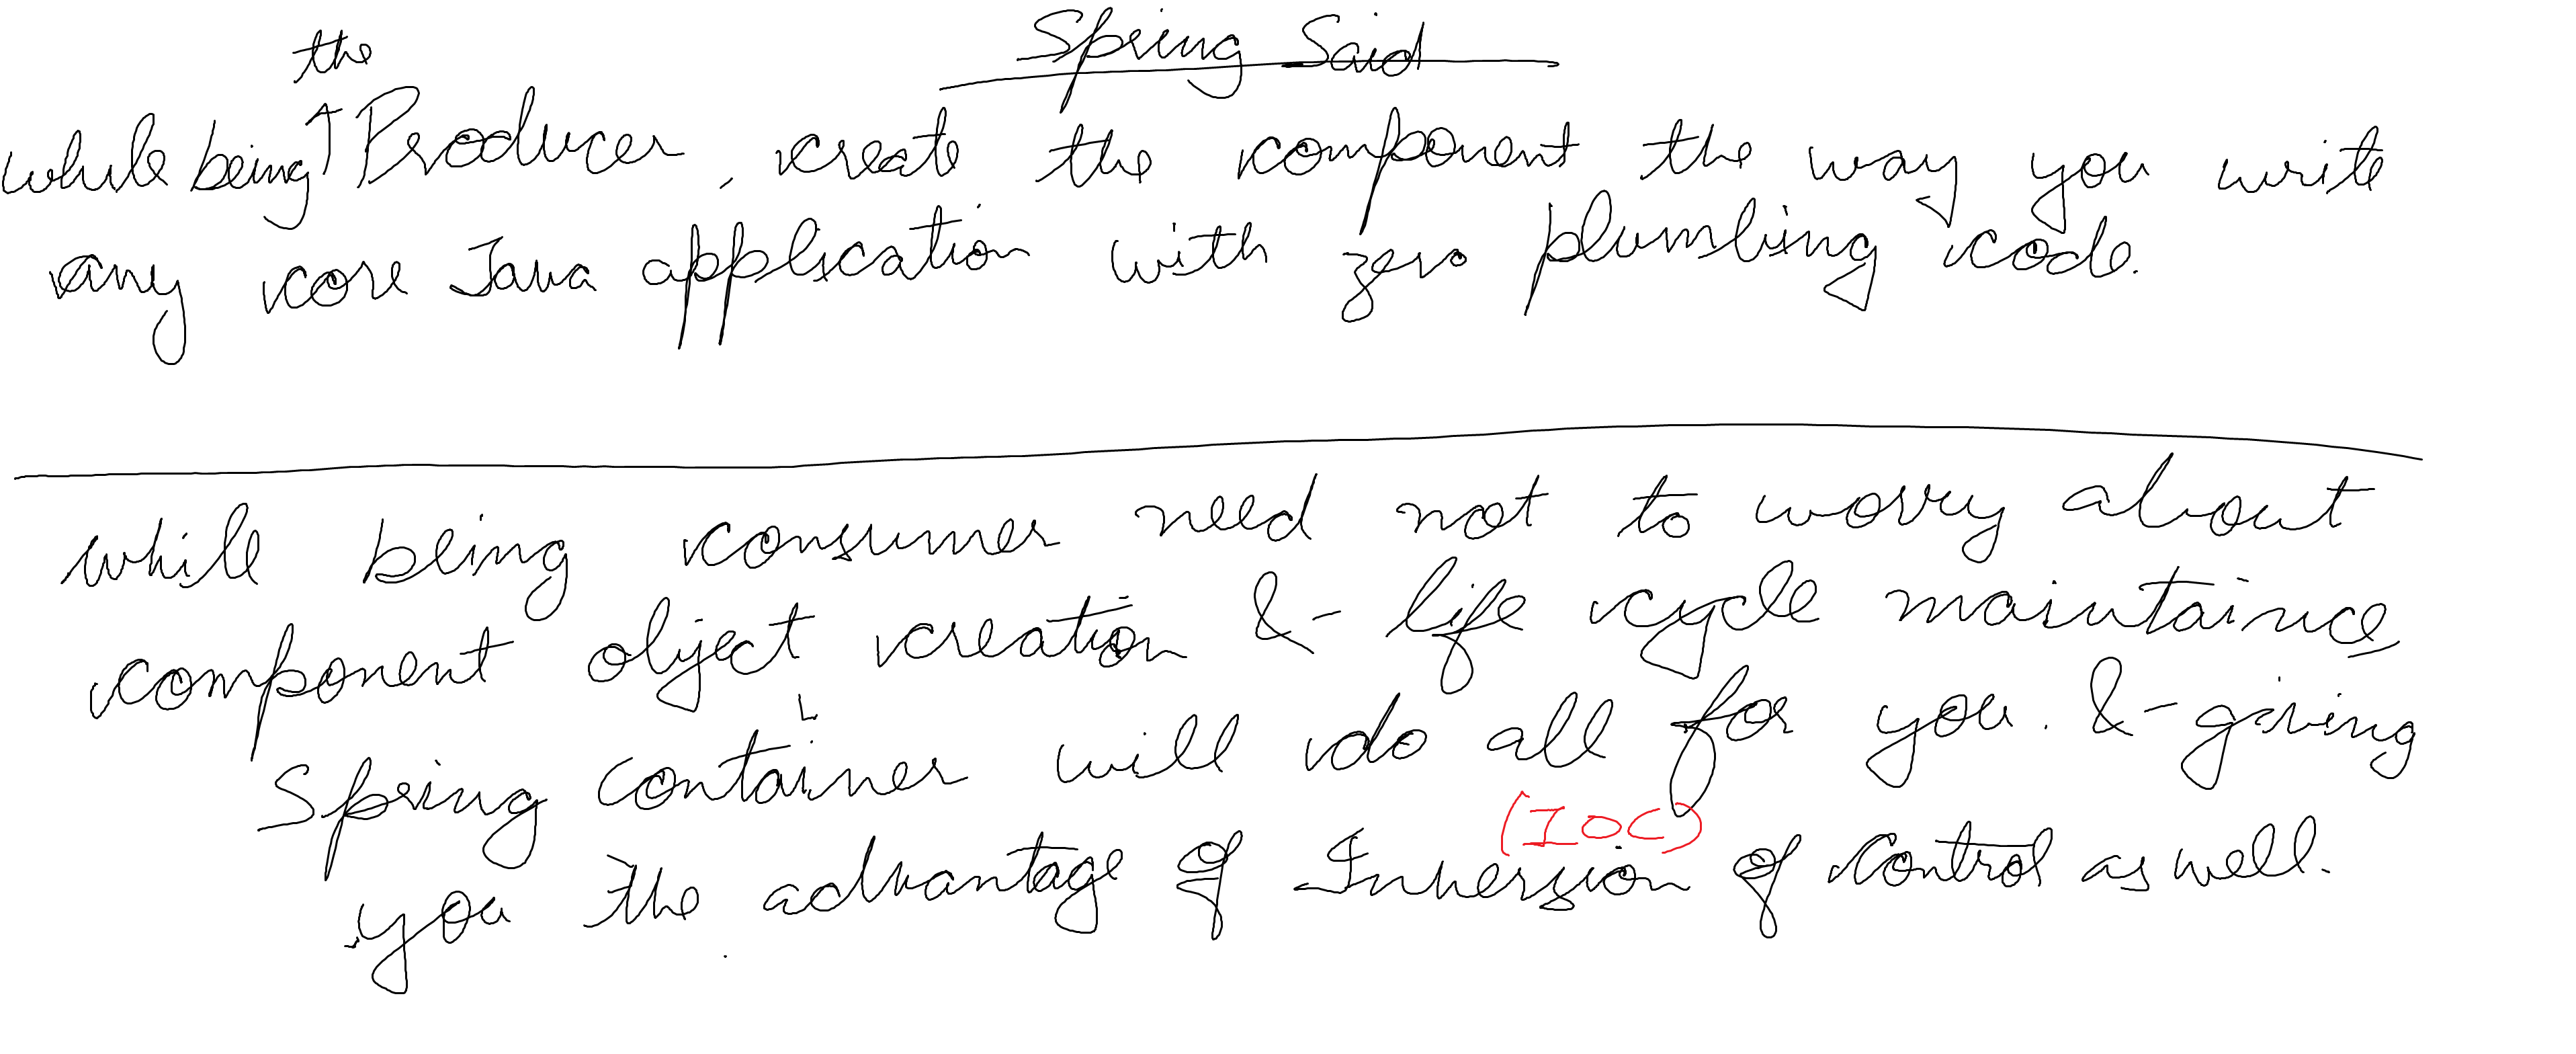 Spring Said
while being the Producer, create the component the way you write
any core Java application with zero plumbing code.
while being consumer need not to worry about
component object creation & life cycle maintaince
Spring container will do all for you. & giving
(IOC)
you the advantage of Inversion of control as well.